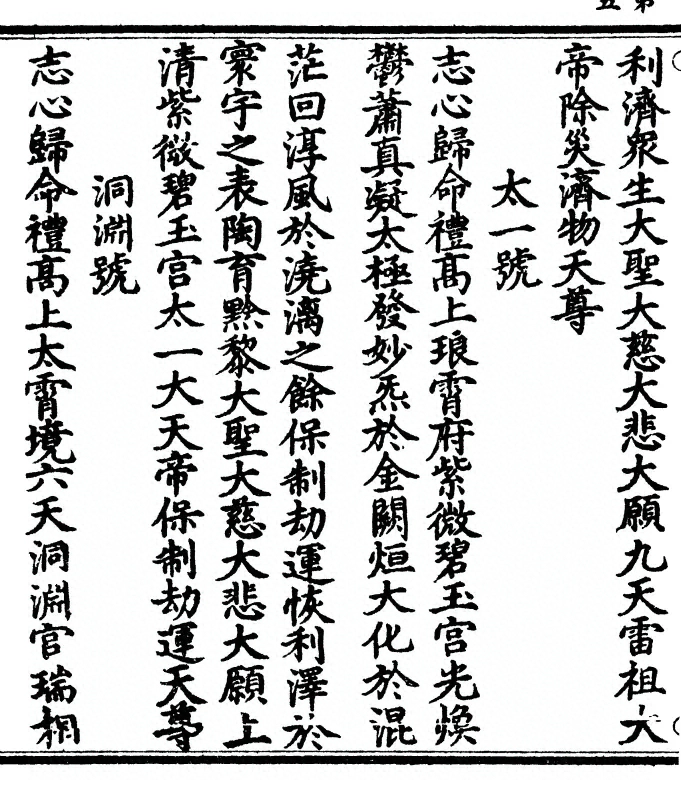 利濟衆生大聖大慈大悲大願九天雷祖大
帝除災濟物天尊
太一號
志心歸命禮高上琅霄府紫微碧玉宮光煥
鬱蕭真凝太極發妙炁於金闕烜大化於混
茫回淳風於澆漓之餘保制劫運恢利澤於
寰宇之表陶育黔黎大聖大慈大悲大願上
清紫微碧玉宮太一大天帝保制劫運天尊
洞淵號
志心歸命禮高上太霄境六天洞淵宮瑞相